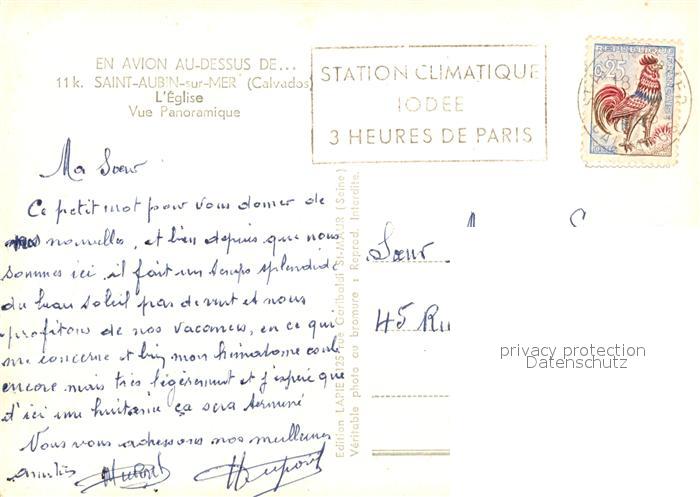 EN AVION AU-DESSUS DE...
11 k. SAINT-AUBIN-sur-MER (Calvados)
L'Église
Vue Panoramique
STATION CLIMATIQUE
IODÉE
3 HEURES DE PARIS
0,25
Ma Sœur
Ce petit mot pour vous donner de
nos nouvelles, et bien depuis que nous
sommes ici il fait un temps splendide
du beau soleil pas de vent et nous
profitons de nos vacances, en ce qui
me concerne et bien mon hématome coule
encore mais très légèrement et j'espère que
d'ici une huitaine ça sera terminé
Nous vous adressons nos meilleures
amitiés
Edition LAPIE rue Garibaldi St-MAUR (Seine)
Véritable photo au bromure : Reprod. Interdite.
Sœur
45 Ru
privacy protection
Datenschutz